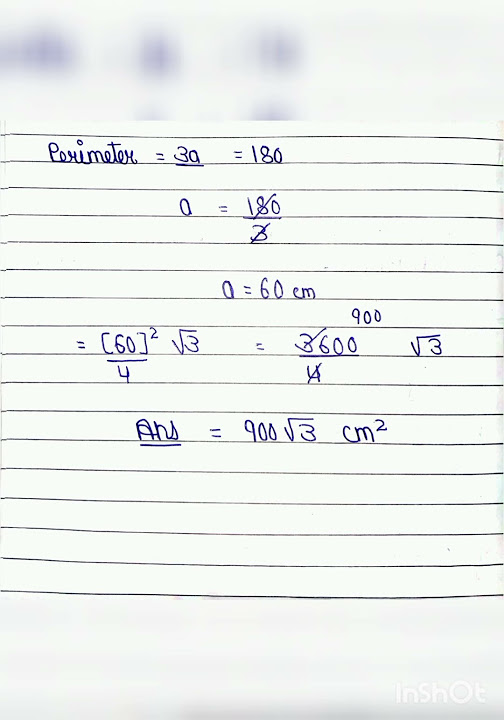 Perimeter = 3a = 180
a = 180/3
a = 60 cm
900
= [60]²/4 √3 = 3600/4 √3
Ans = 900√3 cm²
InShOt